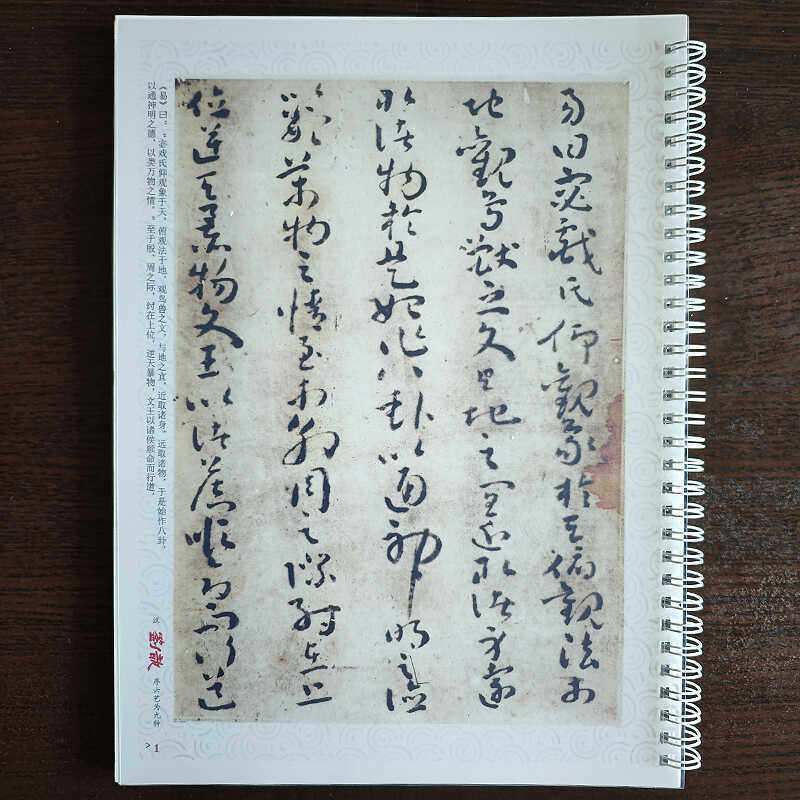 易曰宓戲氏仰觀象於天俯觀法於
地觀鳥獸之文與地之宜近取諸身遠
取諸物於是始作八卦以通神明之德
類萬物之情至於殷周之際紂在上
位逆天暴物文王以諸侯順命而行道
《易》曰：“宓戏氏仰观象于天，俯观法于地，观鸟兽之文，与地之宜，近取诸身，远取诸物，于是始作八卦，
以通神明之德，以类万物之情。”至于殷、周之际，纣在上位，逆天暴物，文王以诸侯顺命而行道，
汉 劉歆 序六艺为九种
> 1